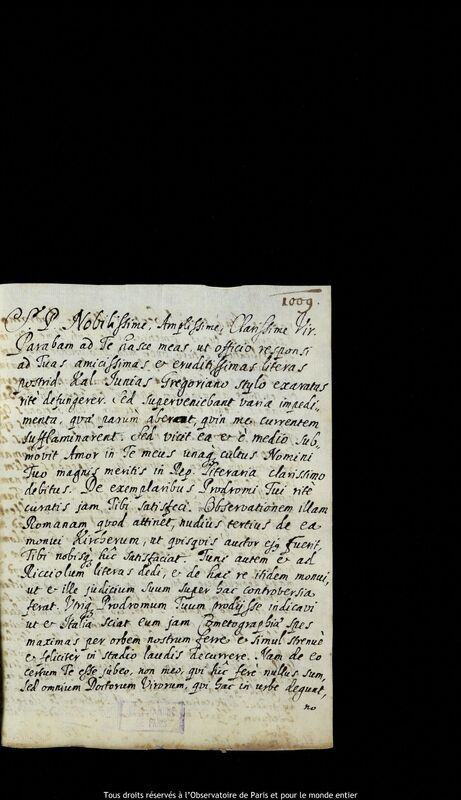 1009.
S. P. Nobilissime, Amplissime, Clarissime Vir.
Parabam ad Te hasce meas, ut officio responsi
ad Tuas amicissimas & eruditissimas literas
postrid. Kal. Junias Gregoriano stylo exaratas
rite defungerer. Sed superveniebant varia impedi-
menta, quæ parum aberant, quin me currentem
sufflaminarent. Sed vicit ea & è medio sub,
movit Amor in Te meus unaq cultus Nomini
Tuo magnis meritis in Rep. Literaria clarissimo
debitus. De exemplaribus Prodromi Tui ritè
curatis jam Tibi satisfeci. Observationem illam
Romanam quod attinet, nudius tertius de ea
monui Kircherum, ut quisquis auctor ejq fuerit,
Tibi nobisq hic satisfaciat. Tunc autem & ad
Ricciolum literas dedi, & de hac re itidem monui,
ut & ille judicium suum super hac controversia
ferat. Utriq Prodromum Tuum prodijsse indicavi
ut & Italia sciat eum jam Cometographiæ spes
maximas per orbem nostrum ferre & simul strenuè
& feliciter in stadio laudis decurrere. Jam de eo
certum Te esse jubeo, non meo, qui hic fere nullus sum,
sed omnium Doctorum Virorum, qui hac in urbe degunt,
no
Tous droits réservés à l'Observatoire de Paris et pour le monde entier